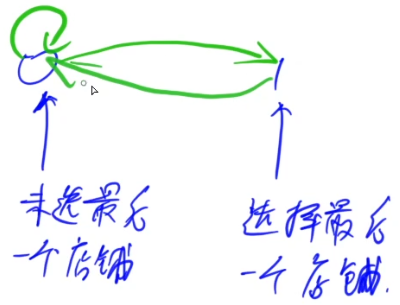 0
1
未选最后
一个店铺
选择最后
一个店铺.